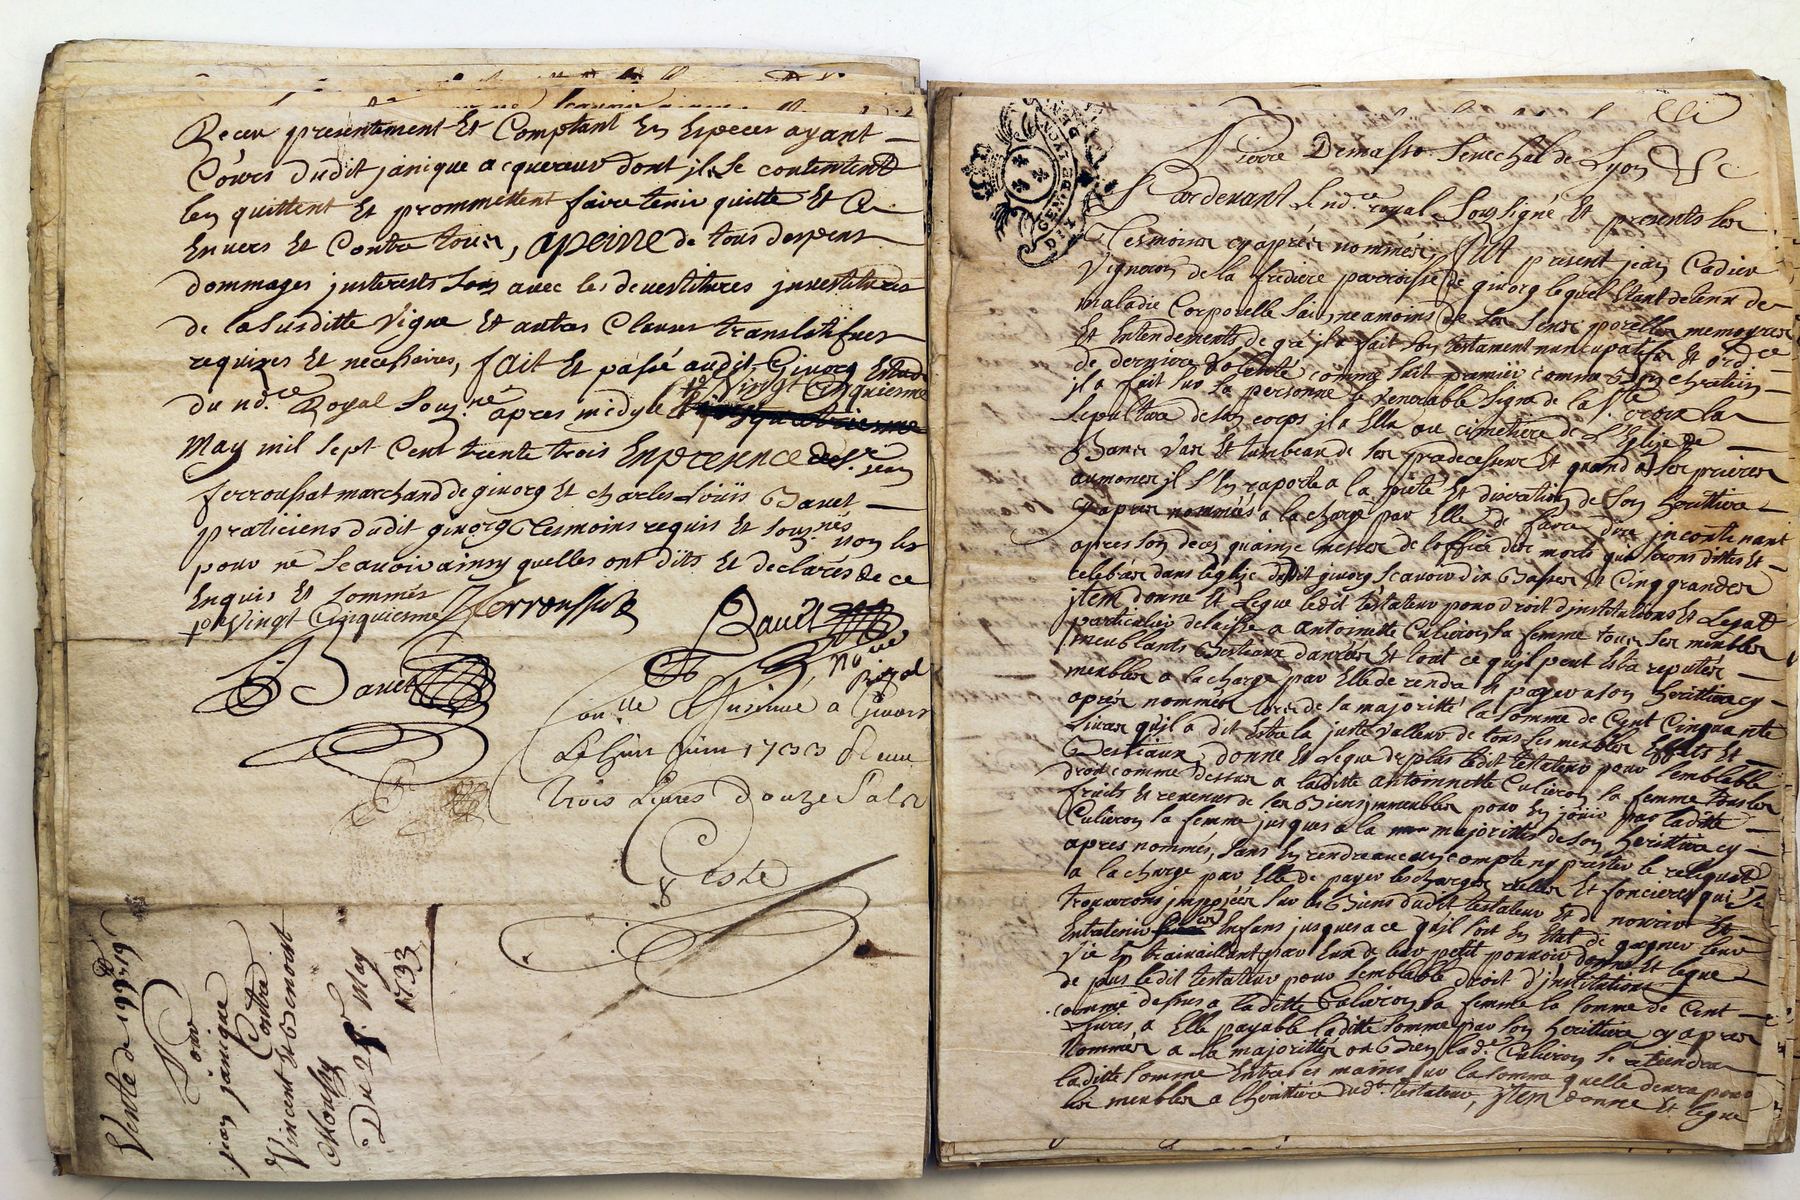 Receu presentement Et Comptant En Especes ayant
Cours dudit janique acquereur dont jls Se contentent
len quittent Et prommettent faire tenir quitte Et Ce
Envers Et Contre tous, apeine de tous despens
dommages jnterests Sous avec les devestitures jnvestitures
de la Susditte Vigne Et autres Clauses translatifves
requizes Et necessaires, fait Et passé audit Givorg Estude
du nd.re Royal Souz.né apres midy le Vingt Cinquiesme
May mil sept Cent trente trois En presence de S.r jean
ferroussat marchand de givorg Et charles Loüis Bavet
praticiens dudit givorg tesmoins requis Et Souz.nés non les
pour ne Scavoir ainsy quelles ont dits Et declarés de ce
Enquis Et Sommés
p.r Vingt Cinquiesme Ferroussat
Bavet
Bavet
no.re
Royal
Con.lle & Insinué à Givors
Le huit Juin 1733 Receu
trois Livres Douze Sols
Coste
Vente de 199# 19
Pour
jean janique
Contre
Vincent & Benoist
Du 25. May
1733
GEN DE LYON
Pierre Demasso Senechal de Lyon &c
Pardevant le nd.re royal Soussigné Et presents les
Tesmoins cy aprés nommés, fut present jean Cadier
Vigneron de la frediere parroisse de givorg lequel Etant detenu de
maladie Corporelle Sain neamoins de Ses Sens parolles memoyres
Et Entendements de gré jl a fait Son testament nuncupatif Et ord.ce
de derniere Volonté comme Suit premier comme Bon chretien
jl a fait Sur Sa personne le Venerable Signe de la S.te croix la
Sepulture de Son corps jl a Ellu au cimetiere de L'Eglise de
Bans Vas Et tombeau de Ses predecesseurs Et quand a Ses prieres
aumones jl S'En raporte a la pieté Et discration de Son heritiere
cy apres nommée a la charge par Elle de faire dire jncontinant
apres Son decez quinze messes de l'office des morts qui Seront dittes Et
celebrées dans l'église dudit givorg Scavoir dix Basses Et Cinq grandes
jtem donne Et Legue ledit testateur pour droit d'jnstitutions Et Legat
particulier delaissé a antoinette Culieron Sa femme tous Ses meubles
meublants Bestiaux danrées Et tout ce qu'jl peut Estre reputés
meubles a la charge par Elle de rendre Et payer a Son heritiere cy
aprés nommée lors de Sa majorité la Somme de Cent Cinquante
Livres qu'jl a dit Estre la juste Valleur de tous Ses meubles Effets Et
Bestiaux, donne Et Legue de plus ledit testateur pour Semblable
droit comme dessus a laditte antoinette Culieron Sa femme tous les
fruits Et revenus de Ses Biens jmmeubles pour En jöuir par laditte
Culieron Sa femme jusques a la majorittés de Son heritiere cy
apres nommés, Sans En rendre aucun compte ny prester le reliquat
a la charge par Elle de payer les charges réelles Et foncieres qui Se
trouverons jmposées Sur les Biens dudit testateur Et de nourir Et
Entretenir Ses Enfans jusques a ce qu'jl Soit En Etat de gagner leur
Vie En travaillant par Eux de leur petit pouvoir donne Et legue
de plus ledit testateur pour Semblable droit d'jnstitutions
comme dessus a laditte Culieron Sa femme la Somme de Cent
Livres a Elle payable laditte Somme par Son heritiere cy apres
nommée a Sa majorittés ou Bien lad.e Culieron Se retiendra
laditte Somme Entre Ses mains Sur la Somme quelle devra pour
les meubles a lheritiere dud.t testateur, jtem donne Et legue